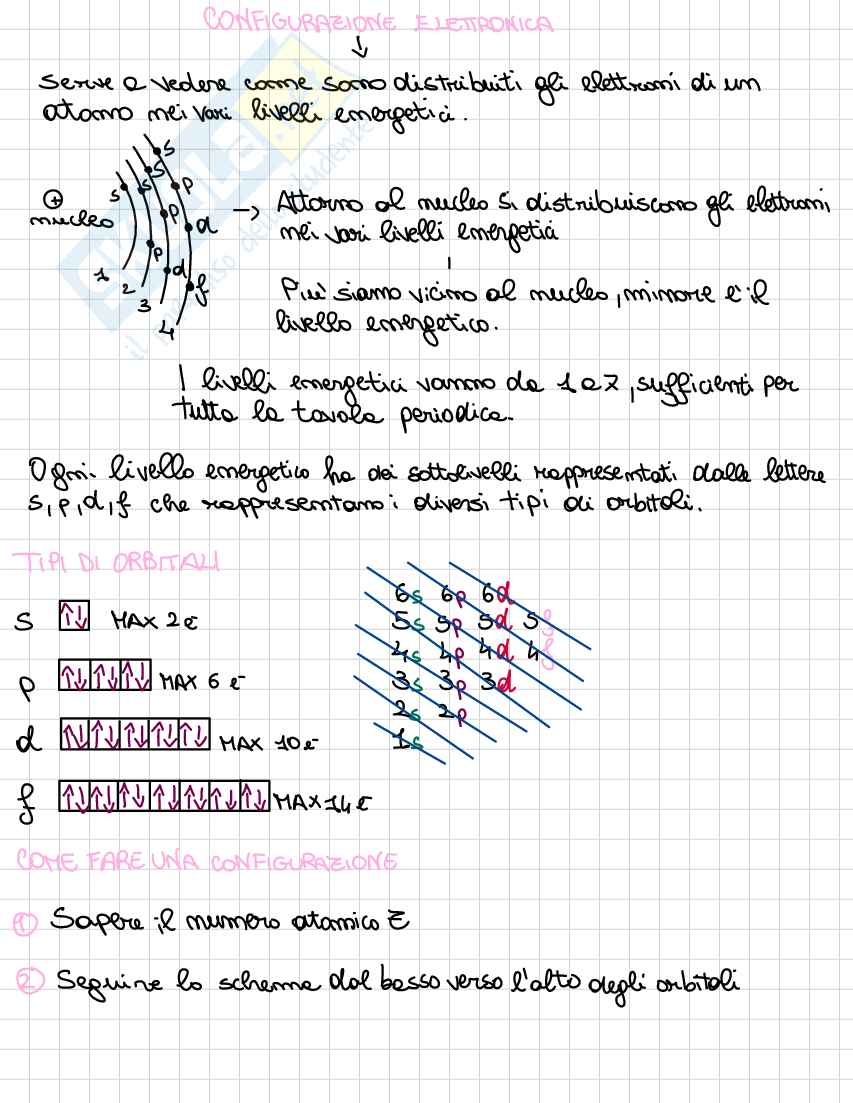 CONFIGURAZIONE ELETTRONICA
↓
Serve a vedere come sono distribuiti gli elettroni di un
atomo nei vari livelli energetici.
s
s
s s
p
⊕
nucleo
p
d
p
d
f
1
2
3
4
-> Attorno al nucleo si distribuiscono gli elettroni
nei vari livelli energetici
Più siamo vicino al nucleo, minore è il
livello energetico.
I livelli energetici vanno da 1 a 7, sufficienti per
tutta la tavola periodica.
Ogni livello energetico ha dei sottolivelli rappresentati dalle lettere
s, p, d, f che rappresentano i diversi tipi di orbitali.
TIPI DI ORBITALI
s ↑↓ MAX 2 e⁻
p ↑↓ ↑↓ ↑↓ MAX 6 e⁻
d ↑↓ ↑↓ ↑↓ ↑↓ ↑↓ MAX 10 e⁻
f ↑↓ ↑↓ ↑↓ ↑↓ ↑↓ ↑↓ ↑↓ MAX 14 e⁻
6s 6p 6d
5s 5p 5d 5f
4s 4p 4d 4f
3s 3p 3d
2s 2p
1s
COME FARE UNA CONFIGURAZIONE
① Sapere il numero atomico Z
② Seguire lo schema dal basso verso l'alto degli orbitali